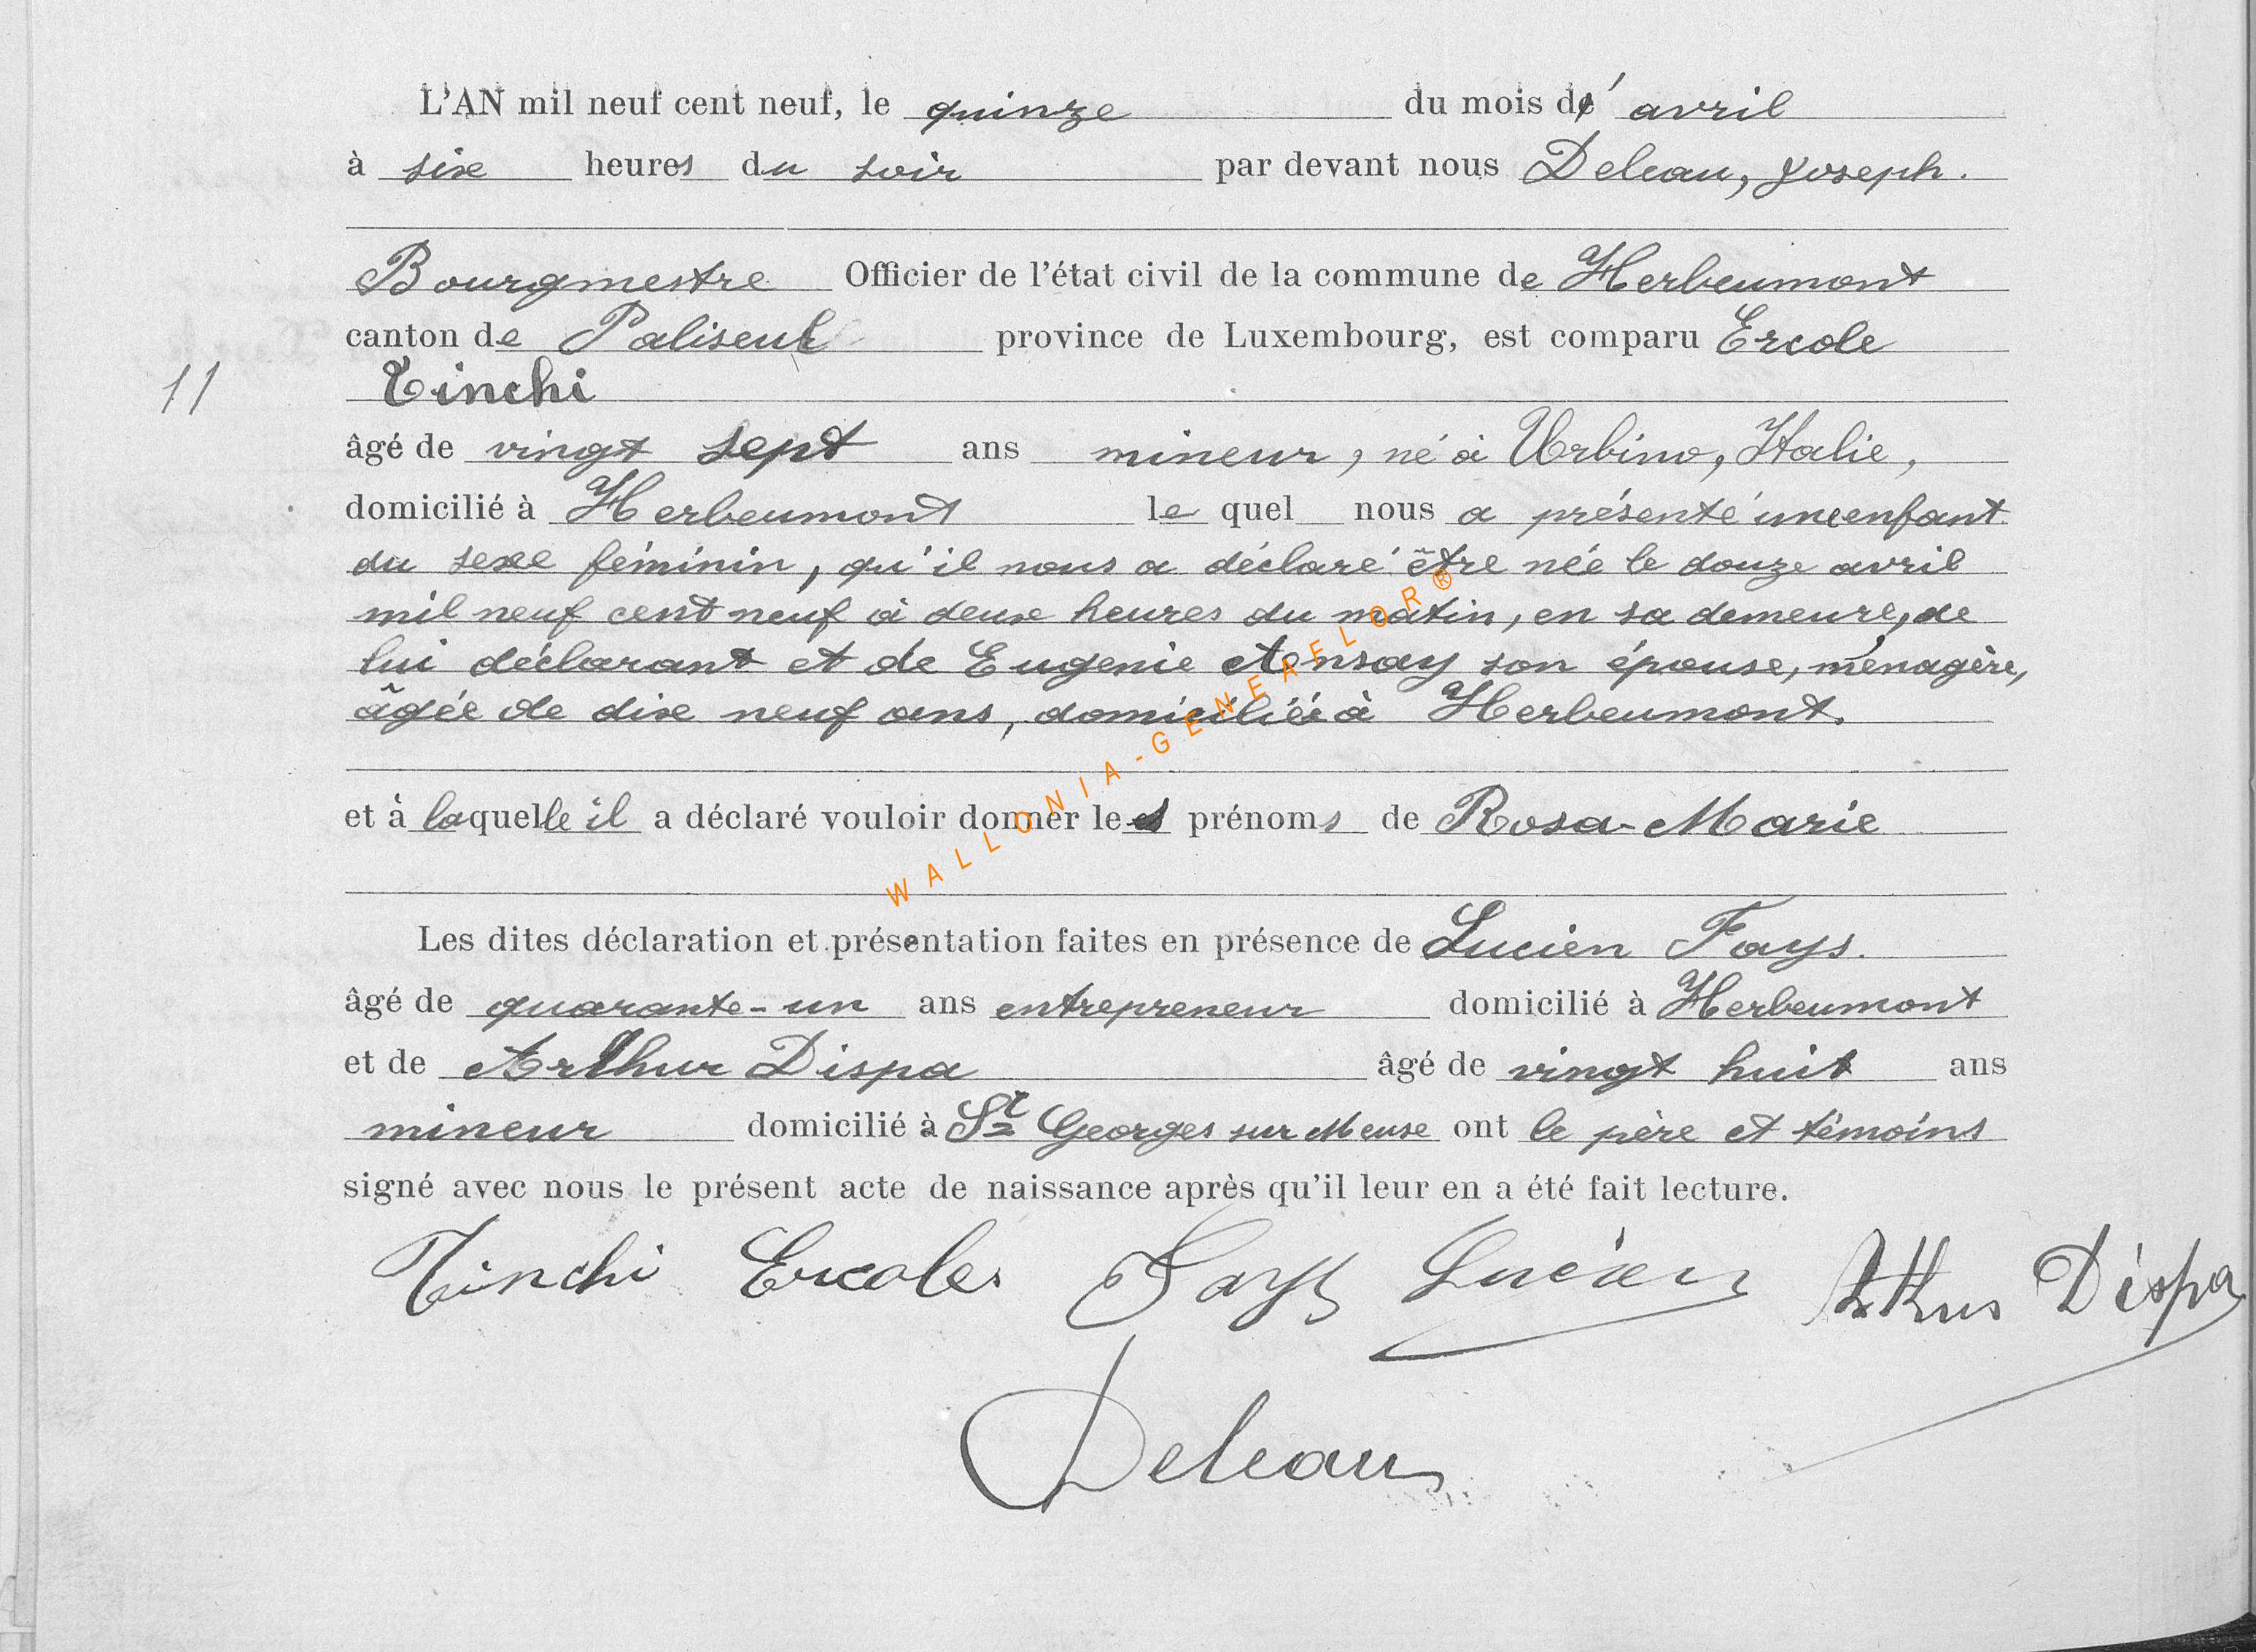 L'AN mil neuf cent neuf, le quinze du mois d'avril
à six heures du soir par devant nous Deleau, Joseph.
Bourgmestre Officier de l'état civil de la commune de Herbeumont
canton de Paliseul province de Luxembourg, est comparu Ercole
11 Tinchi
âgé de vingt sept ans mineur, né à Urbino, Italie,
domicilié à Herbeumont le quel nous a présenté une enfant
du sexe féminin, qu'il nous a déclaré être née le douze avril
mil neuf cent neuf à deux heures du matin, en sa demeure, de
lui déclarant et de Eugenie Ansay son épouse, ménagère,
âgée de dix neuf ans, domiciliée à Herbeumont.
et à laquelle il a déclaré vouloir donner les prénoms de Rosa-Marie
Les dites déclaration et présentation faites en présence de Lucien Fays.
âgé de quarante-un ans entrepreneur domicilié à Herbeumont
et de Arthur Dispa âgé de vingt huit ans
mineur domicilié à St Georges sur Meuse ont le père et témoins
signé avec nous le présent acte de naissance après qu'il leur en a été fait lecture.
Tinchi Ercole Fays Lucien Arthur Dispa
Deleau
WALLONIA-GENEAFLOR®